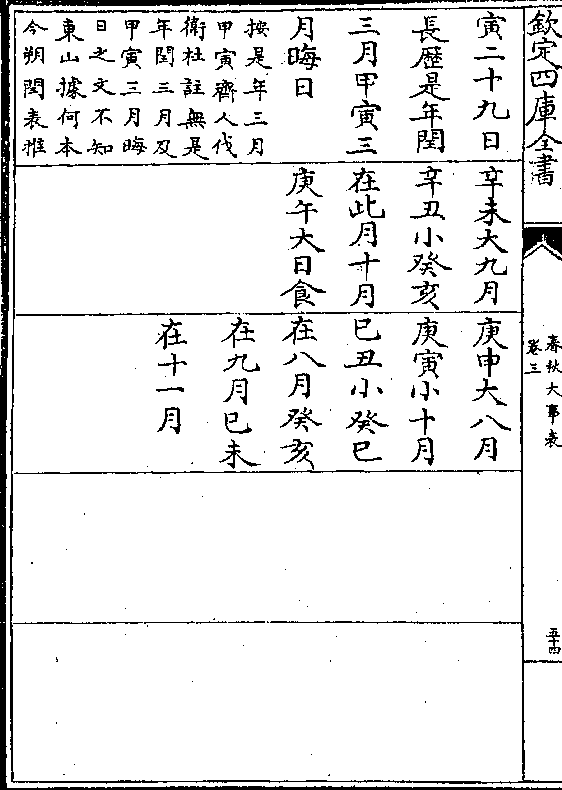 欽定四庫全書
春秋大事表
卷三
五十四
寅二十九日
長歷是年閏
三月甲寅三
月晦日
按是年三月
甲寅齊人伐
衛杜註無是
年閏三月及
甲寅三月晦
日之文不知
東山據何本
今朔閏表推
辛未大九月
辛丑小癸亥
在此月十月
庚午大日食
庚申大八月
庚寅小十月
己丑小癸巳
在八月癸亥
在九月己未
在十一月